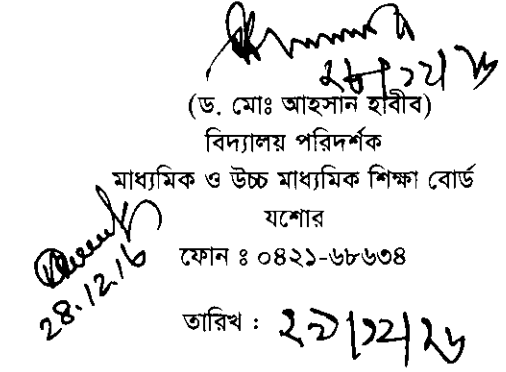 ২৮/১২/১৬
(ড. মোঃ আহসান হাবীব)
বিদ্যালয় পরিদর্শক
মাধ্যমিক ও উচ্চ মাধ্যমিক শিক্ষা বোর্ড
যশোর
ফোন ঃ ০৪২১-৬৮৬৩৪
28.12.16
তারিখ : ২৯/১২/১৬